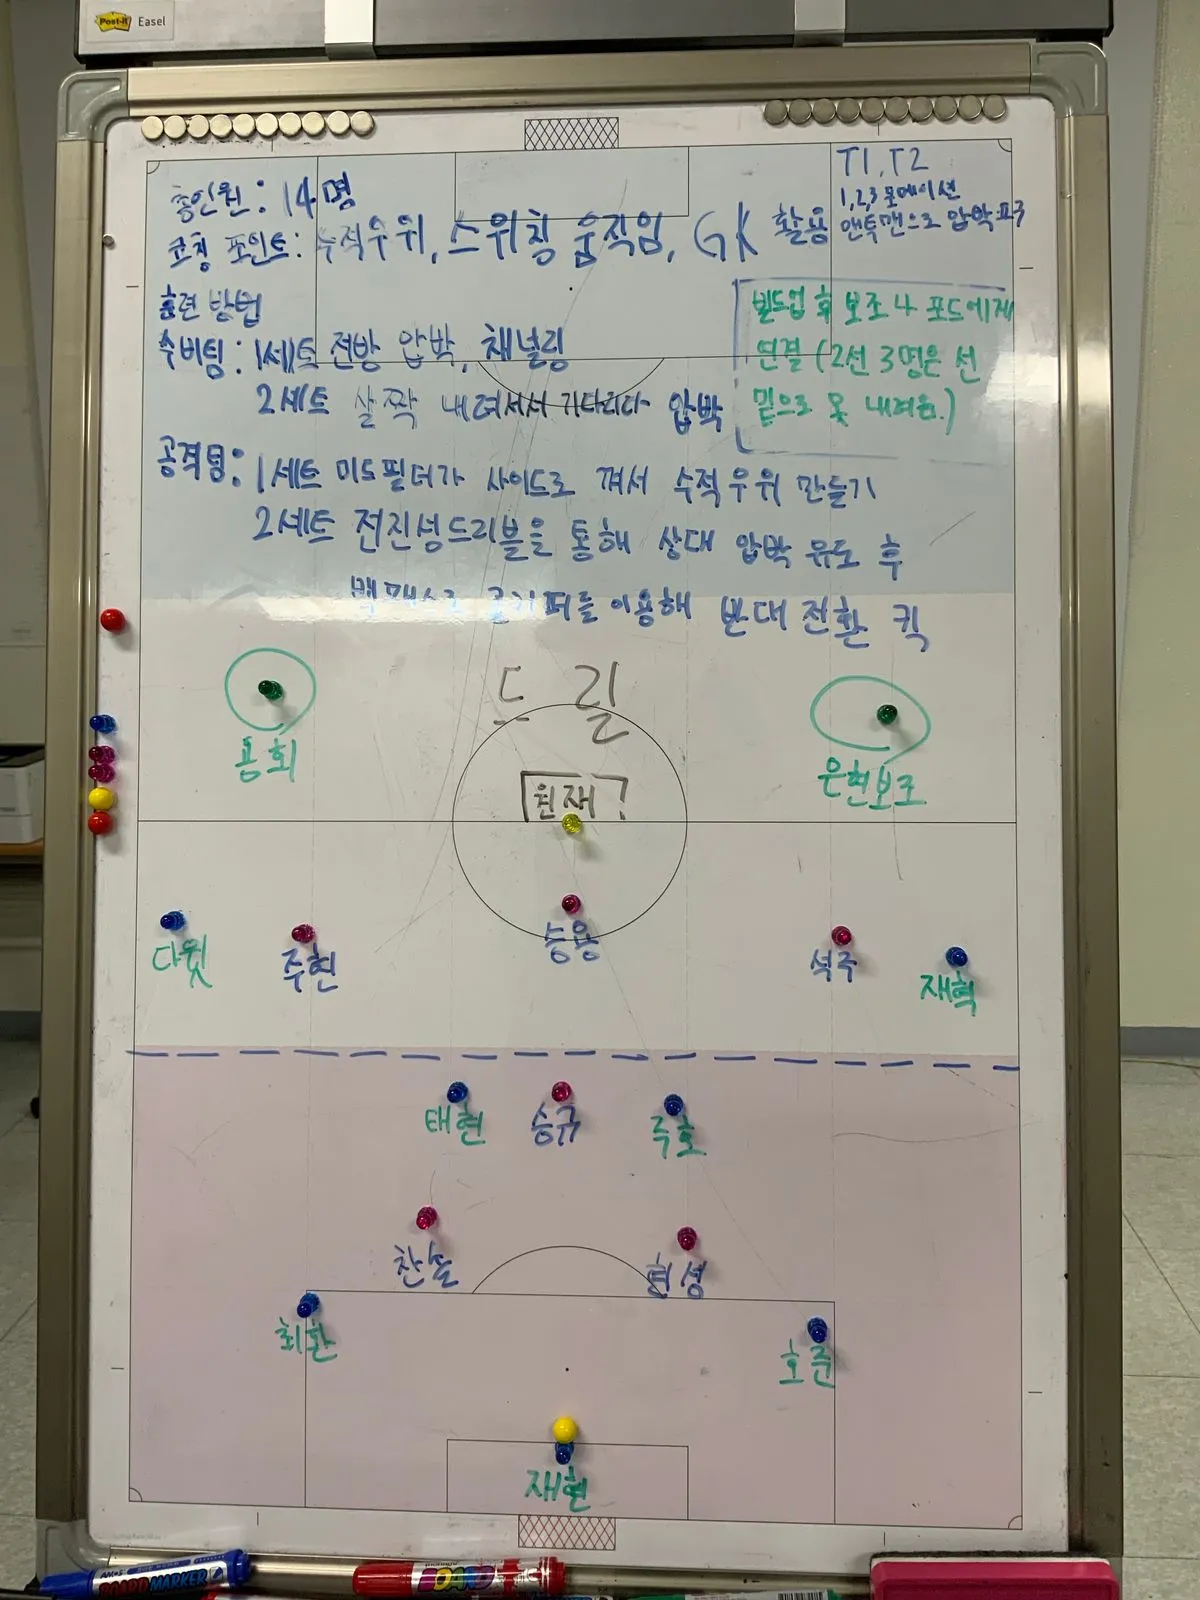 Post-it Easel
T1, T2
총인원 : 14명
1,2,3 로메이션
맨투맨으로 압박
코칭 포인트 : 수적우위, 스위칭 움직임, GK 활용
훈련 방법
수비팀 : 1세트 전방 압박, 채널링
2세트 살짝 내려서서 기다리다 압박
빌드업 후 보조나 포드에게
연결 (2선 3명은 선
밑으로 못 내려옴.)
공격팀 : 1세트 미드필더가 사이드로 껴서 수적우위 만들기
2세트 전진성드리블을 통해 상대 압박 유도 후
백패스로 골키퍼를 이용해 반대 전환 킥
드릴
용희
은현보조
원재?
다윗
주현
승용
석주
재혁
태현
승규
주호
찬솔
현성
최환
호준
재현
AMOS
BOARDMARKER
BOARD